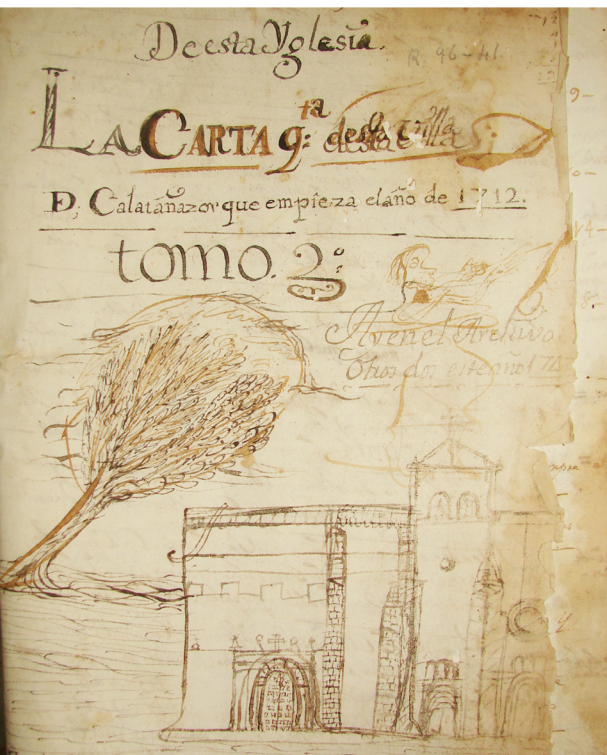 De esta Yglesia.
R. 96-41
LA CARTA q:ta desta Villa
D, Calatañazor que empieza el año de 1712.
tomo. 2º
Ay en el Archivo
Otros dos este año